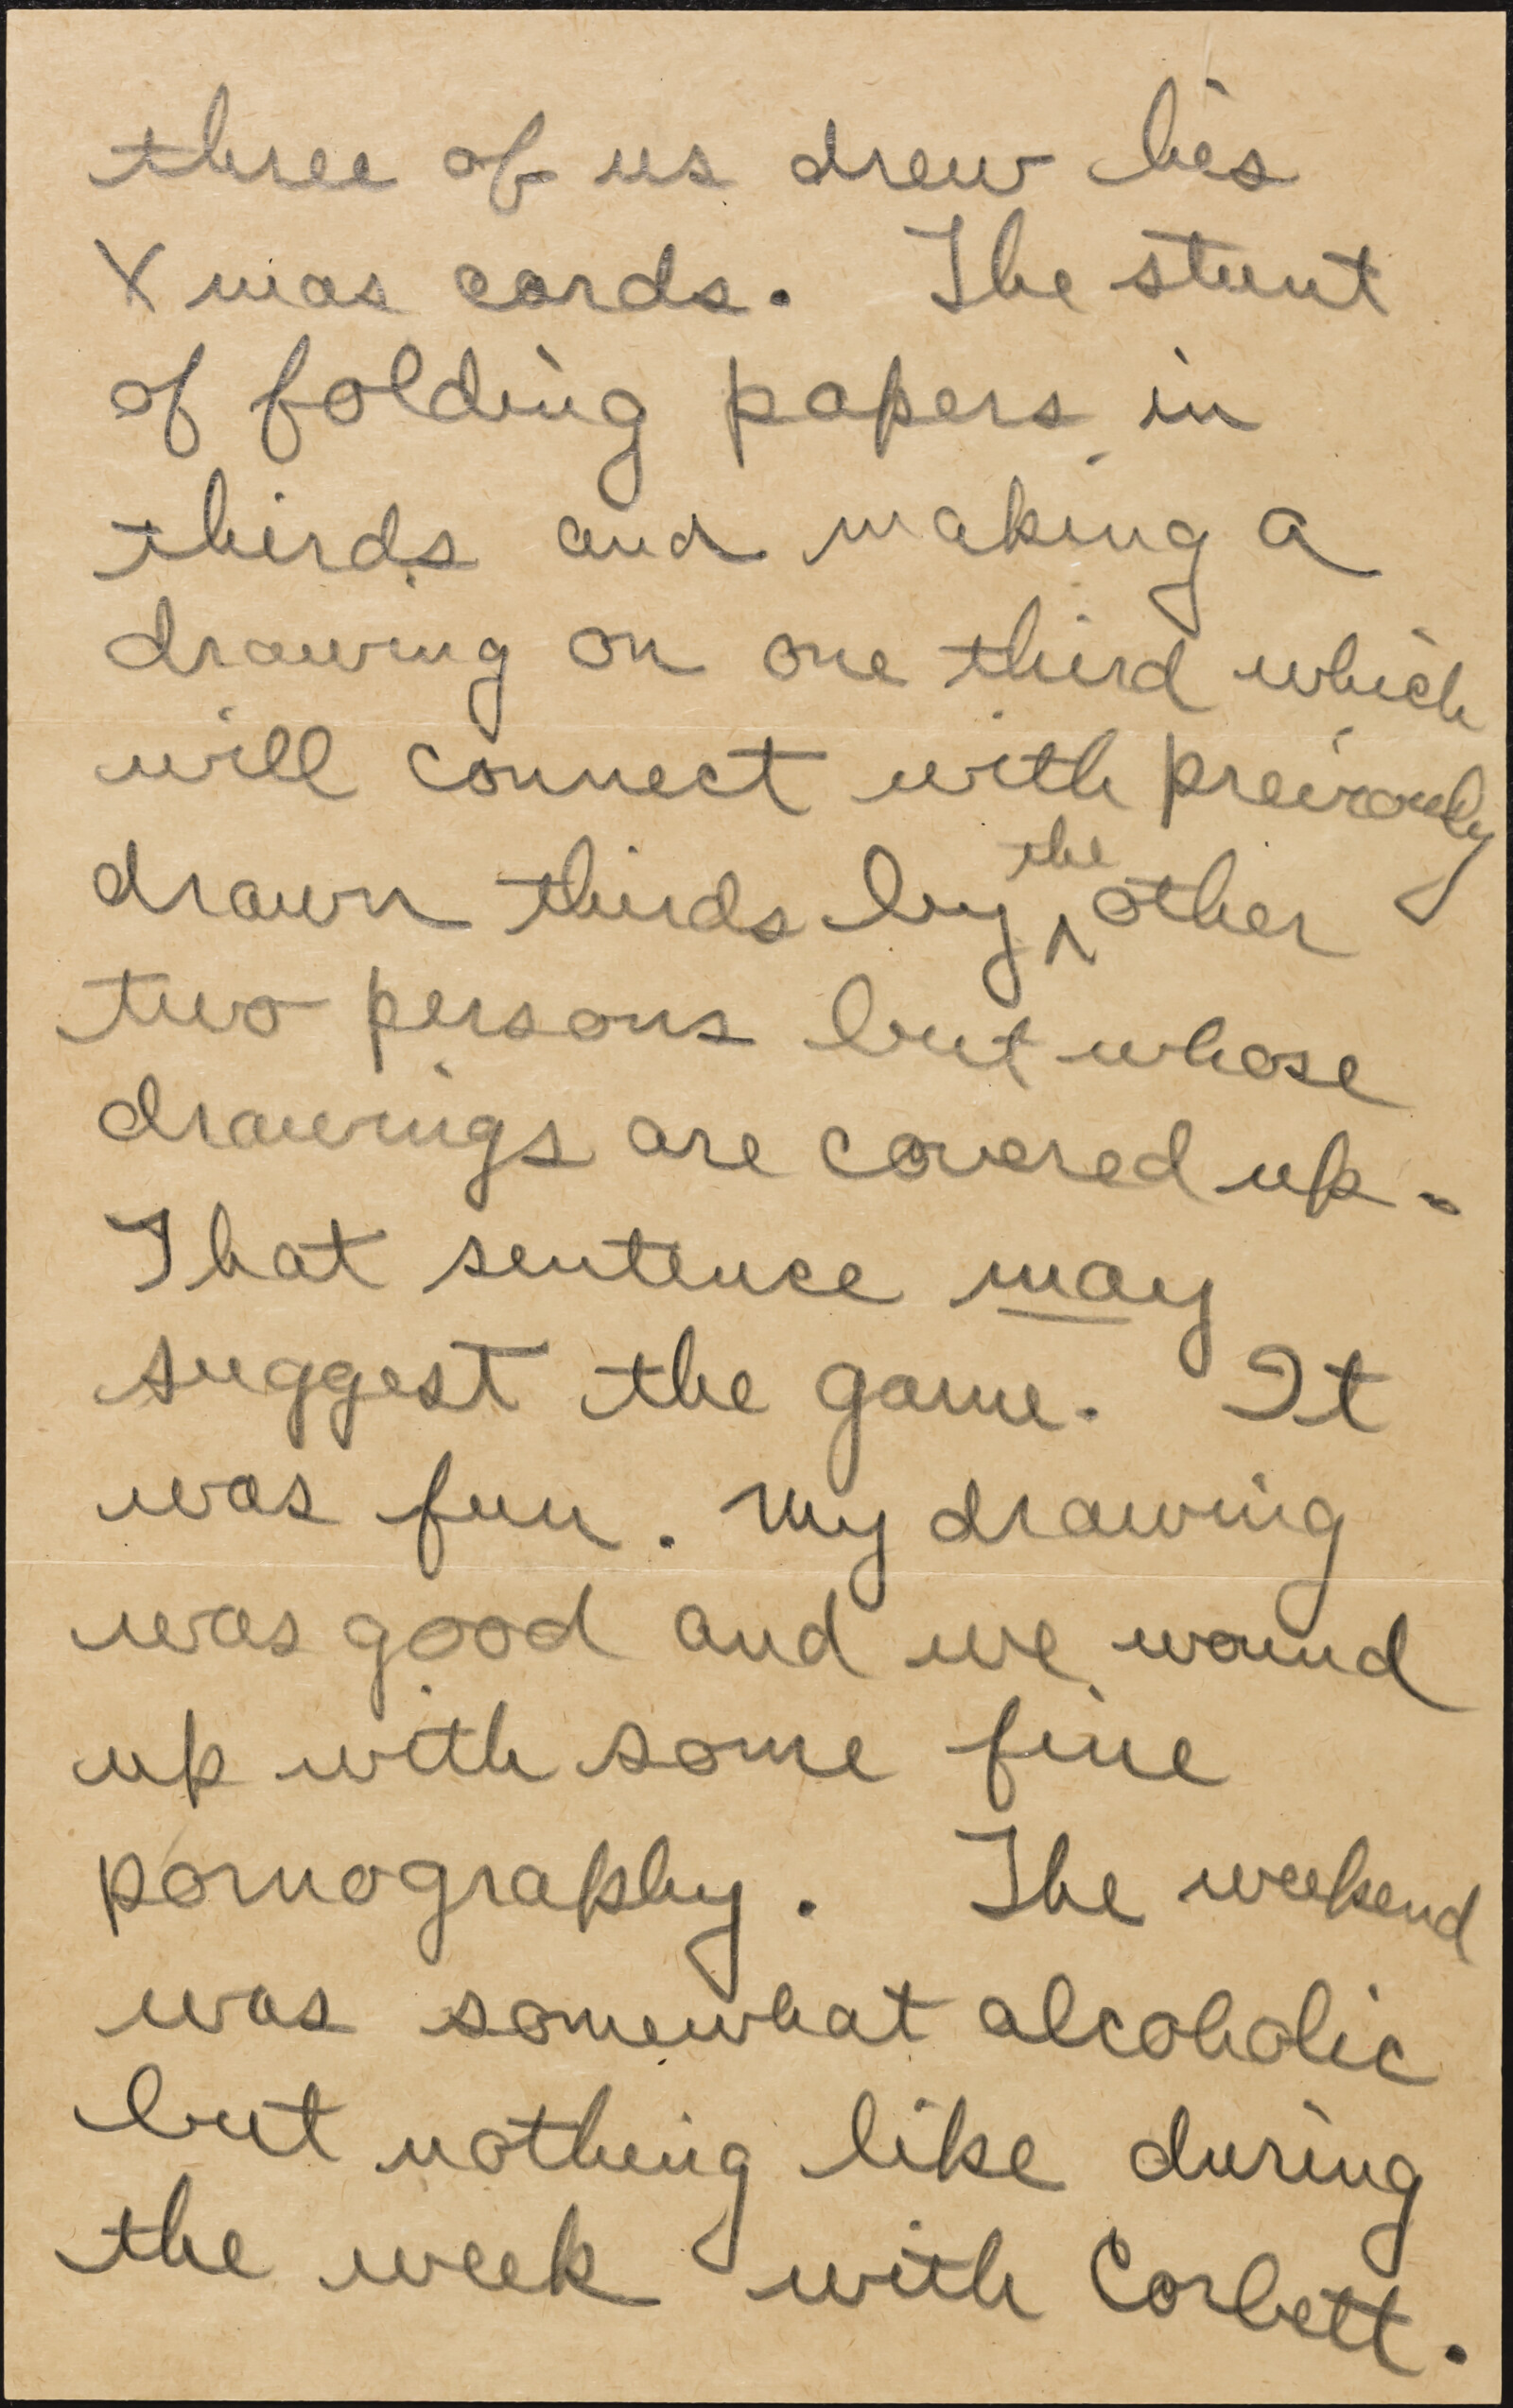 three of us drew his
Xmas cards. The stunt
of folding papers in
thirds and making a
drawing on one third which
will connect with preivously
drawn thirds by ^the other
two persons but whose
drawings are covered up.
That sentence may
suggest the game. It
was fun. My drawing
was good and we wound
up with some fine
pornography. The weekend
was somewhat alcoholic
but nothing like during
the week with Corbett.